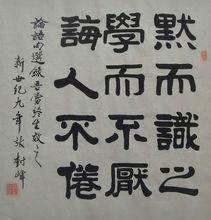 默而識之
學而不厭
誨人不倦
論語選錄吾當終生效之
新世紀九年張峰